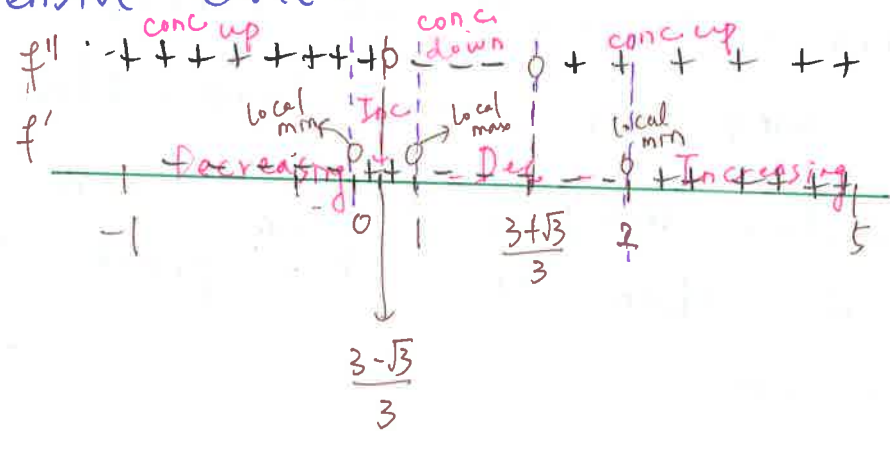 conc up conc down conc up
f'' + + + + + + + + 0 - - - 0 + + + + + +
Inc
local min local max local min
f' Decreasing - 0 + + 0 - Dec - - 0 + + Increasing + + + +
-1 0 1 3+√3 2 5
3
3-√3
3